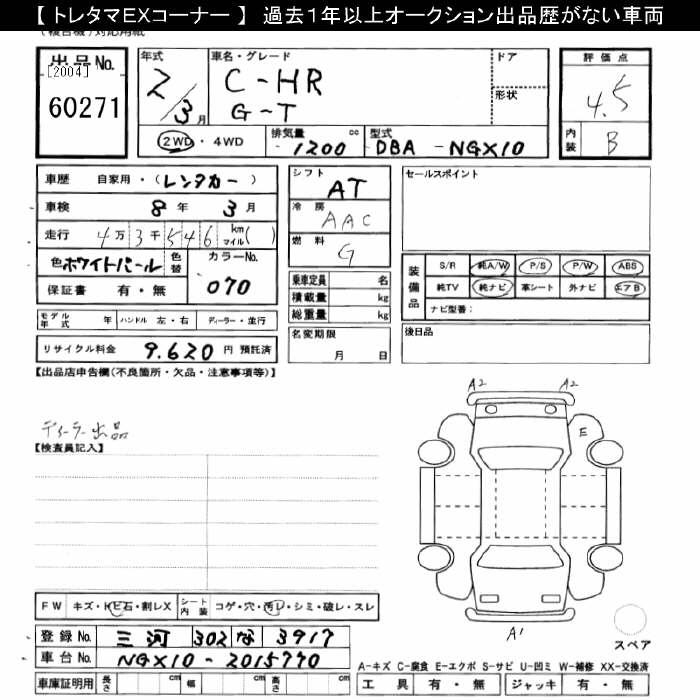 【トレタマEXコーナー】 過去1年以上オークション出品歴がない車両
出品No.
[2004]
60271
年式
2/3月
車名・グレード
C-HR
G-T
ドア
形状
評価点
4.5
内装
B
2WD・4WD
排気量
1200 cc
型式
DBA - NGX10
車歴 自家用・(レンタカー)
車検 8年 3月
走行 4万3千546 km マイル( )
色 ホワイトパール 色替
カラーNo.
070
保証書 有・無
モデル年式 年 ハンドル 左・右 ディーラー・並行
リサイクル料金 9.620 円 預託済
シフト
AT
冷房
AAC
燃料
G
乗車定員 名
積載量 kg
総重量 kg
名変期限
月 日
セールスポイント
装備品
S/R 純A/W P/S P/W ABS
純TV 純ナビ 革シート 外ナビ エアB
ナビ型番:
後日品
【出品店申告欄(不良箇所・欠品・注意事項等)】
ディーラー出品
【検査員記入】
A2 A2
E
A1
スペア
FW キズ・トビ石・割レX シート内装 コゲ・穴・汚レ・シミ・破レ・スレ
登録No. 三河 302 な 3917
車台No. NGX10-2015770
車庫証明用 長さ cm 幅 cm 高さ cm
A-キズ C-腐食 E-エクボ S-サビ U-凹ミ W-補修 XX-交換済
工具 有・無 ジャッキ 有・無